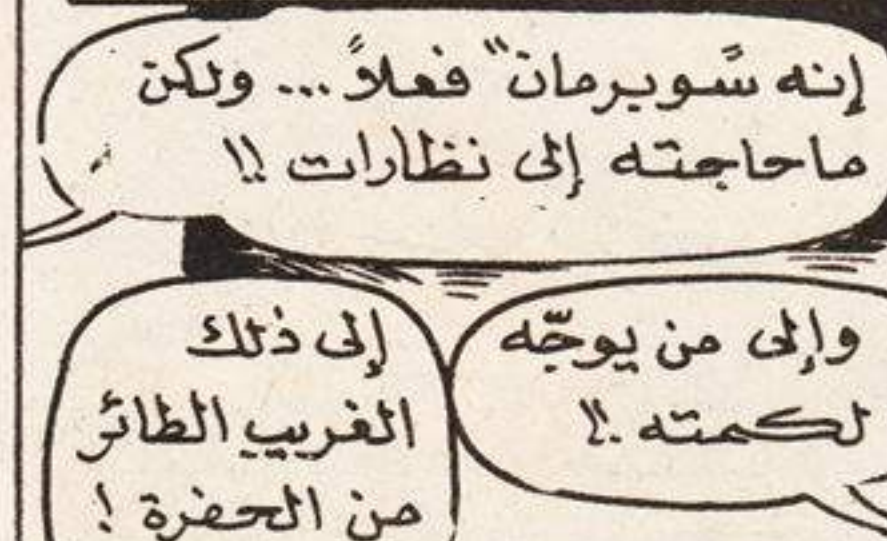 إنه "سوبرمان" فعلاً... ولكن
ما حاجته إلى نظارات !!
وإلى من يوجّه
لكمته .!!
إلى ذلك
الغريب الطائر
من الحفرة !